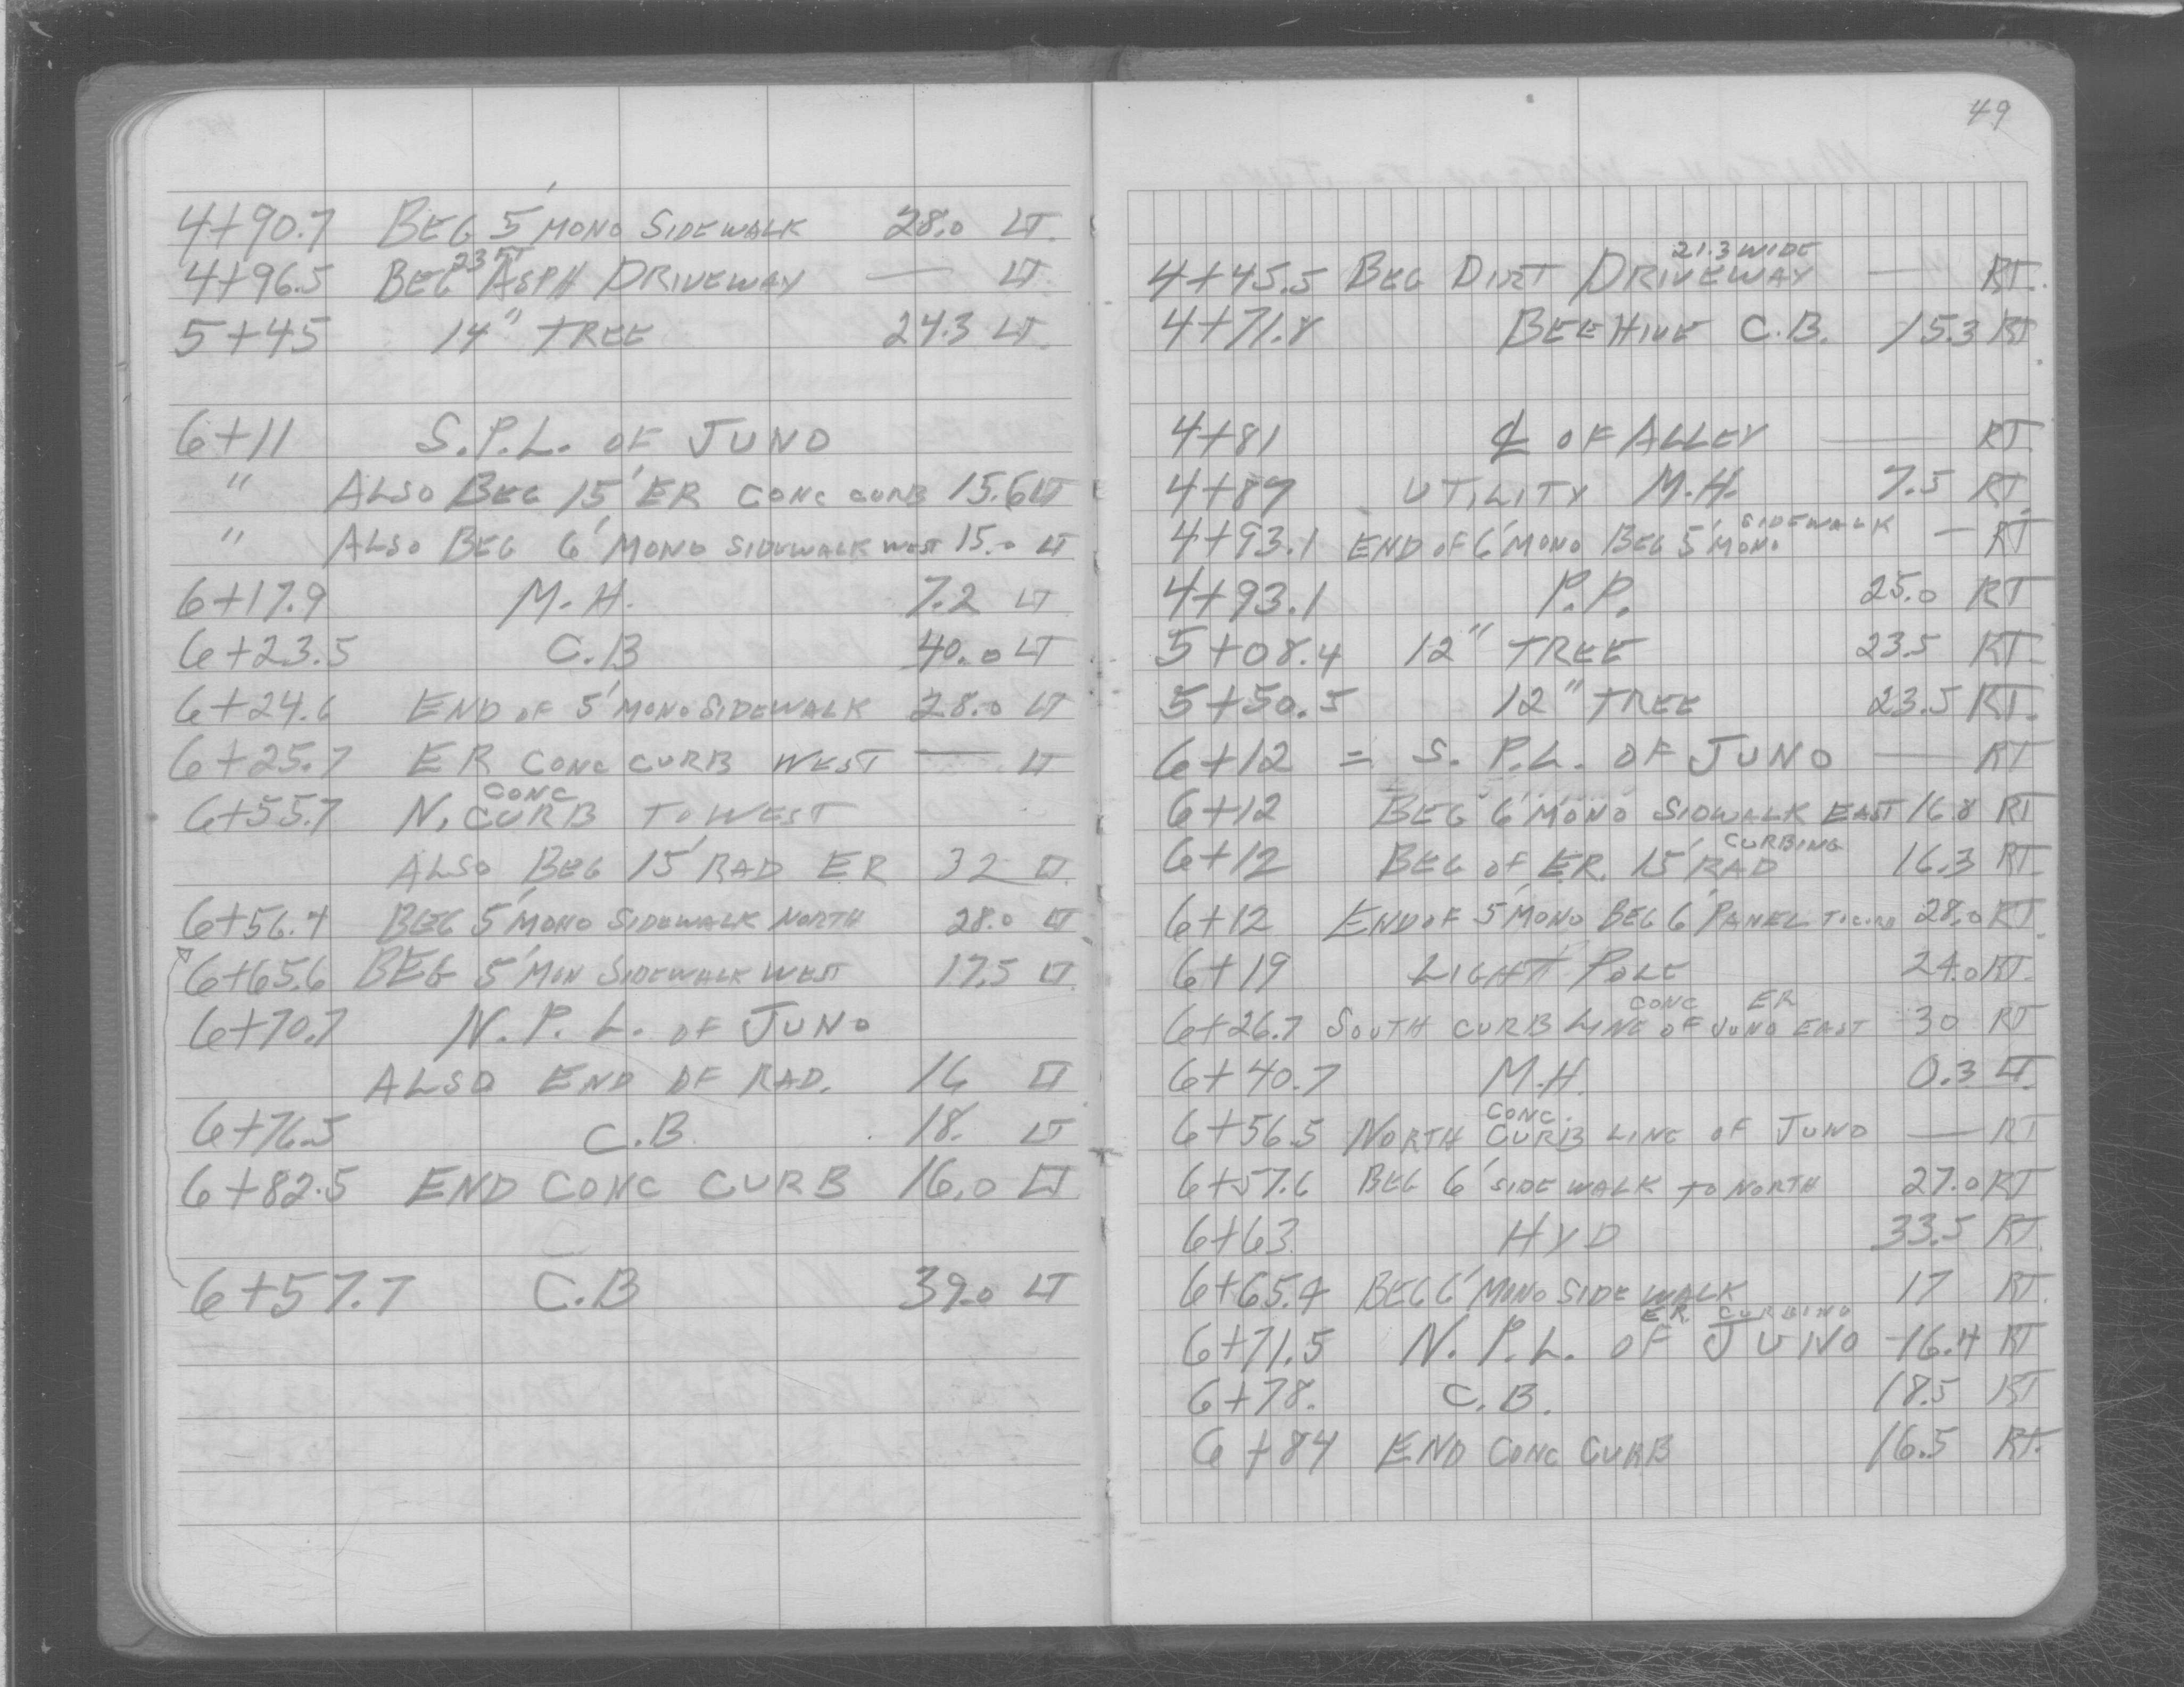 4+90.7 BEG 5' MONO SIDEWALK 28.0 LT.
4+96.5 BEG 23 FT ASPH DRIVEWAY — LT.
5+45 14" TREE 24.3 LT.
6+11 S.P.L. OF JUNO
" ALSO BEG 15' ER CONC CURB 15.6 LT
" ALSO BEG 6' MONO SIDEWALK WEST 15.0 LT
6+17.9 M.H. 7.2 LT
6+23.5 C.B 40.0 LT
6+24.6 END OF 5' MONO SIDEWALK 28.0 LT
6+25.7 ER CONC CURB WEST — LT
6+55.7 N. CONC CURB TO WEST
ALSO BEG 15' RAD ER 32 LT.
6+56.4 BEG 5' MONO SIDEWALK NORTH 28.0 LT
6+65.6 BEG 5' MON SIDEWALK WEST 17.5 LT.
6+70.7 N. P. L. OF JUNO
ALSO END OF RAD. 16 LT
6+76.5 C.B. 18. LT
6+82.5 END CONC CURB 16.0 LT
6+57.7 C.B 39.0 LT
49
4+45.5 BEG DIRT DRIVEWAY 21.3 WIDE — RT.
4+71.8 BEEHIVE C.B. 15.3 RT
4+81 ℄ OF ALLEY — RT.
4+89 UTILITY M.H. 7.5 RT
4+93.1 END OF 6' MONO BEG 5' MONO SIDEWALK — RT
4+93.1 P.P. 25.0 RT
5+08.4 12" TREE 23.5 RT.
5+50.5 12" TREE 23.5 RT.
6+12 = S. P.L. OF JUNO — RT
6+12 BEG 6' MONO SIDWALK EAST 16.8 RT
6+12 BEG OF ER. 15' RAD CURBING 16.3 RT.
6+12 END OF 5' MONO BEG 6' PANEL 28.0 RT.
6+19 LIGHT POLE 24.0 RT.
6+26.7 SOUTH CURB LINE OF JUNO EAST CONC ER 30 RT
6+40.7 M.H. 0.3 LT.
6+56.5 NORTH CONC. CURB LINE OF JUNO — RT
6+57.6 BEG 6' SIDEWALK TO NORTH 27.0 RT
6+63. HYD 33.5 RT.
6+65.4 BEG 6' MONO SIDE WALK 17 RT.
6+71.5 N. P.L. OF JUNO ER CURBING 16.4 RT
6+78. C.B. 18.5 RT
6+84 END CONC CURB 16.5 RT.